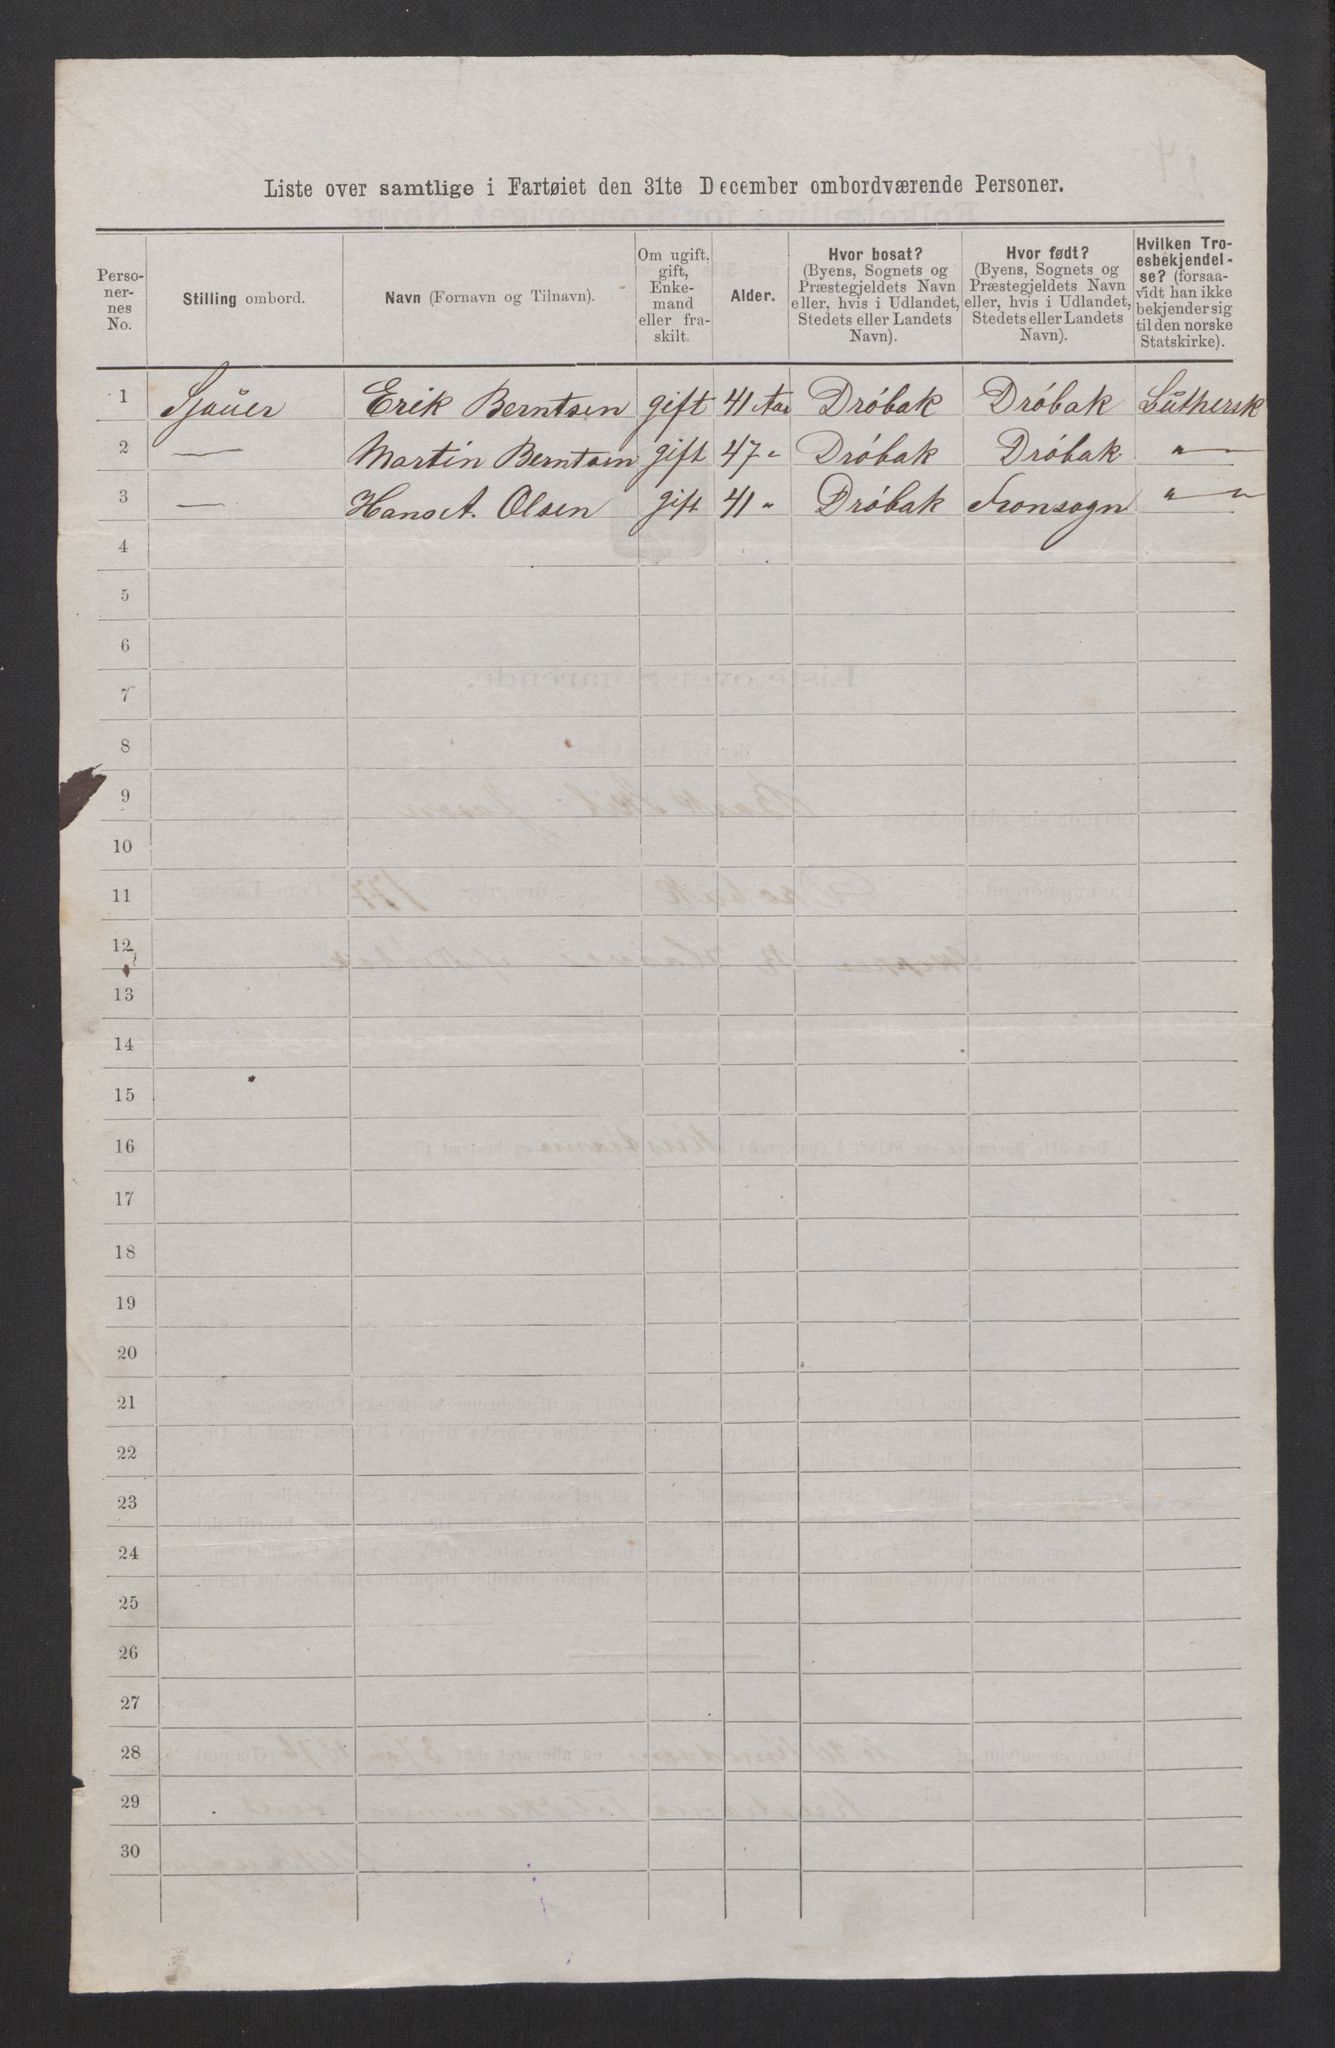 Liste over samtlige i Fartøiet den 31te December ombordværende Personer.
Perso-
ner-
nes
No.
Stilling ombord.
Navn (Fornavn og Tilnavn).
Om ugift,
gift,
Enke-
mand
eller fra-
skilt.
Alder.
Hvor bosat?
(Byens, Sognets og
Præstegjeldets Navn
eller, hvis i Udlandet,
Stedets eller Landets
Navn).
Hvor født?
(Byens, Sognets og
Præstegjeldets Navn
eller, hvis i Udlandet,
Stedets eller Landets
Navn).
Hvilken Tro-
esbekjendel-
se? (forsaa-
vidt han ikke
bekjender sig
til den norske
Statskirke).
1 Sjauer Erik Berntsen gift 41 Aar Dróbak Dróbak Luthersk
2 — Martin Berntsen gift 47 " Dróbak Dróbak " —
3 — Hans A. Olsen gift 41 " Dróbak Fronsogn " "
4
5
6
7
8
9
10
11
12
13
14
15
16
17
18
19
20
21
22
23
24
25
26
27
28
29
30